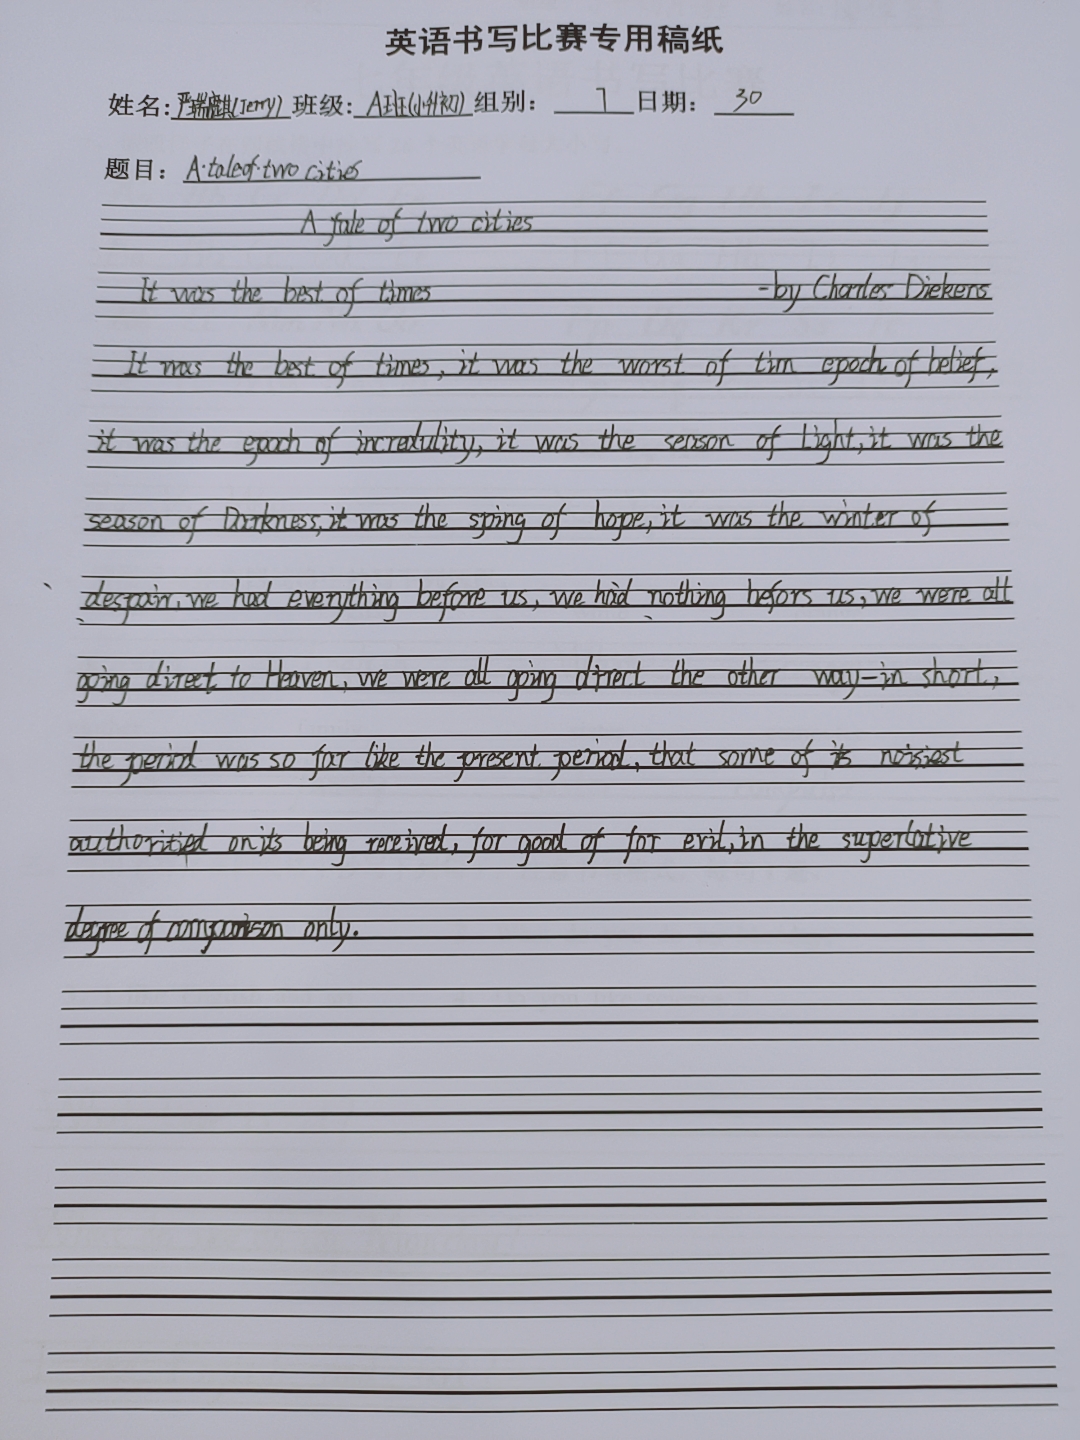 英语书写比赛专用稿纸
姓名: 严瑞麒(Jerry) 班级: A班(小升初) 组别: 7 日期: 30
题目: A·tale of·two cities
A tale of two cities
It was the best of times -by Charles Diekens
It was the best of times, it was the worst of tim epoch of belief,
it was the epoch of incredulity, it was the season of Light, it was the
season of Darkness, it was the sping of hope, it was the winter of
despair, we had everything before us, we had nothing befors us, we were all
going direct to Heaven, we were all going direct the other way-in short,
the period was so far like the present period, that some of is noisiest
authoritied on its being received, for good of for evil, in the superlative
degree of comparison only.